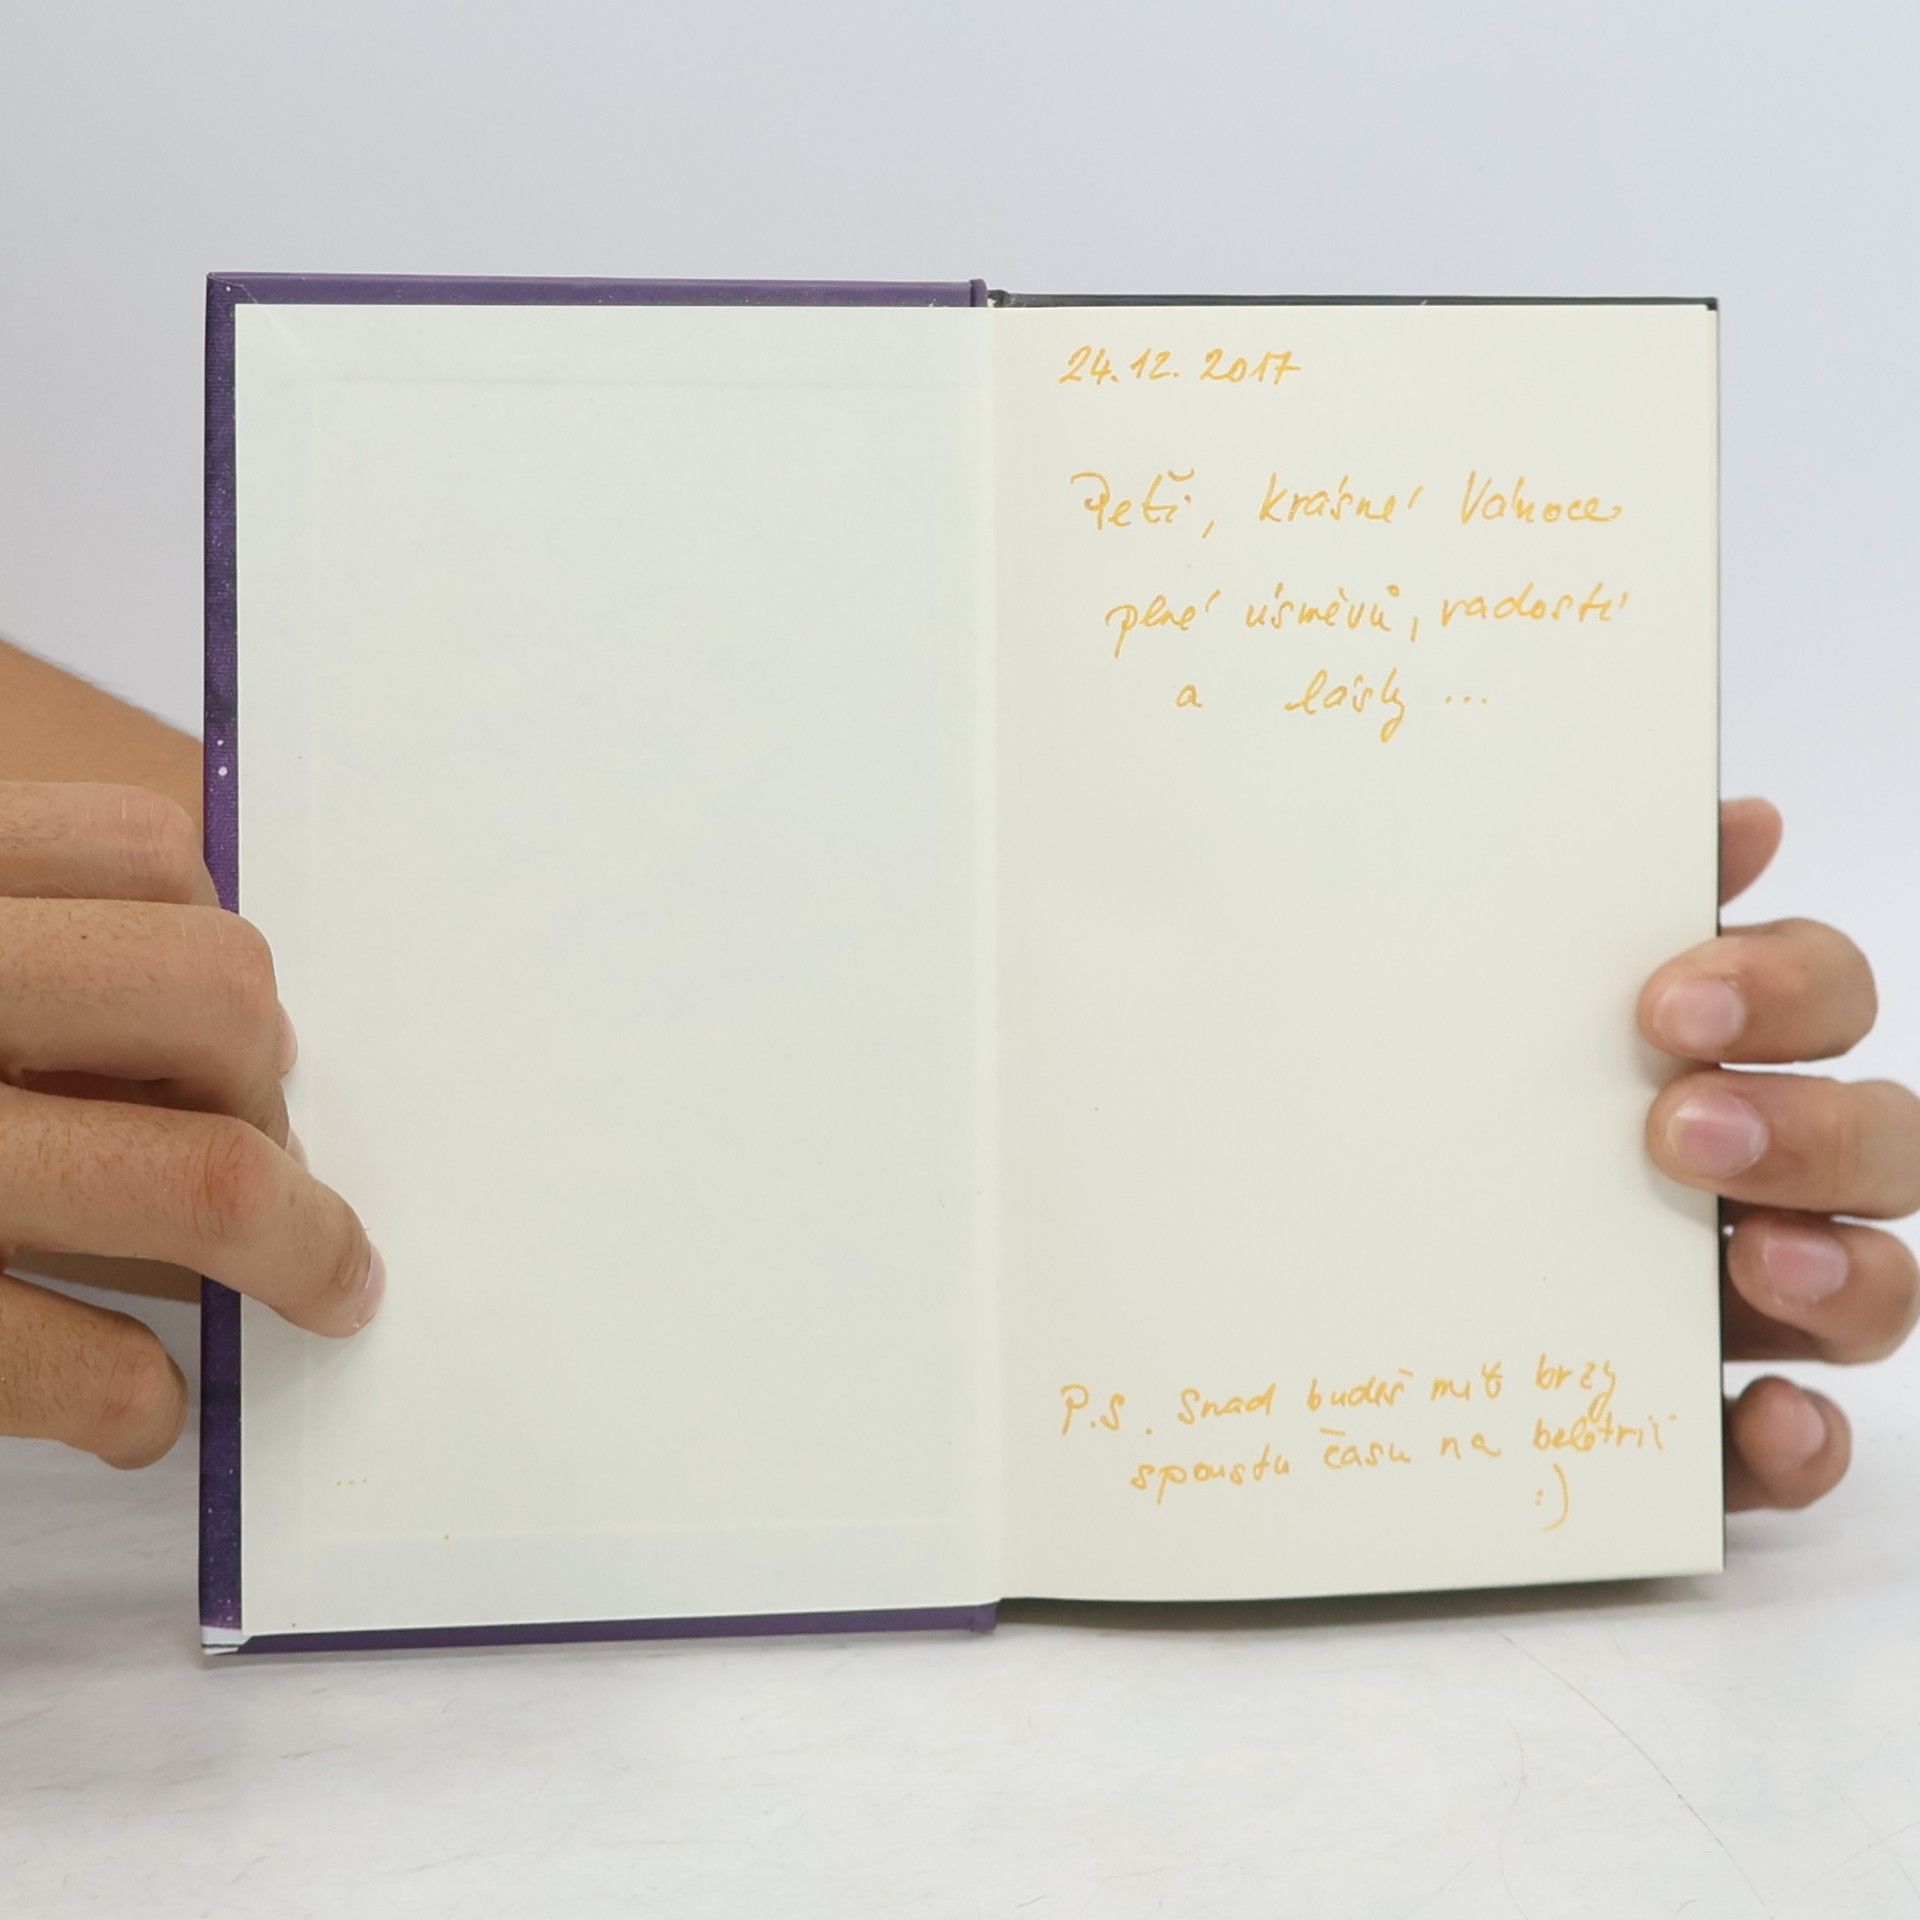 24.12. 2017
Peťi, krásné Vánoce
plné úsměvů, radosti
a lásky ...
P.S. Snad budeš mít brzy
spoustu času na beletrii
:)